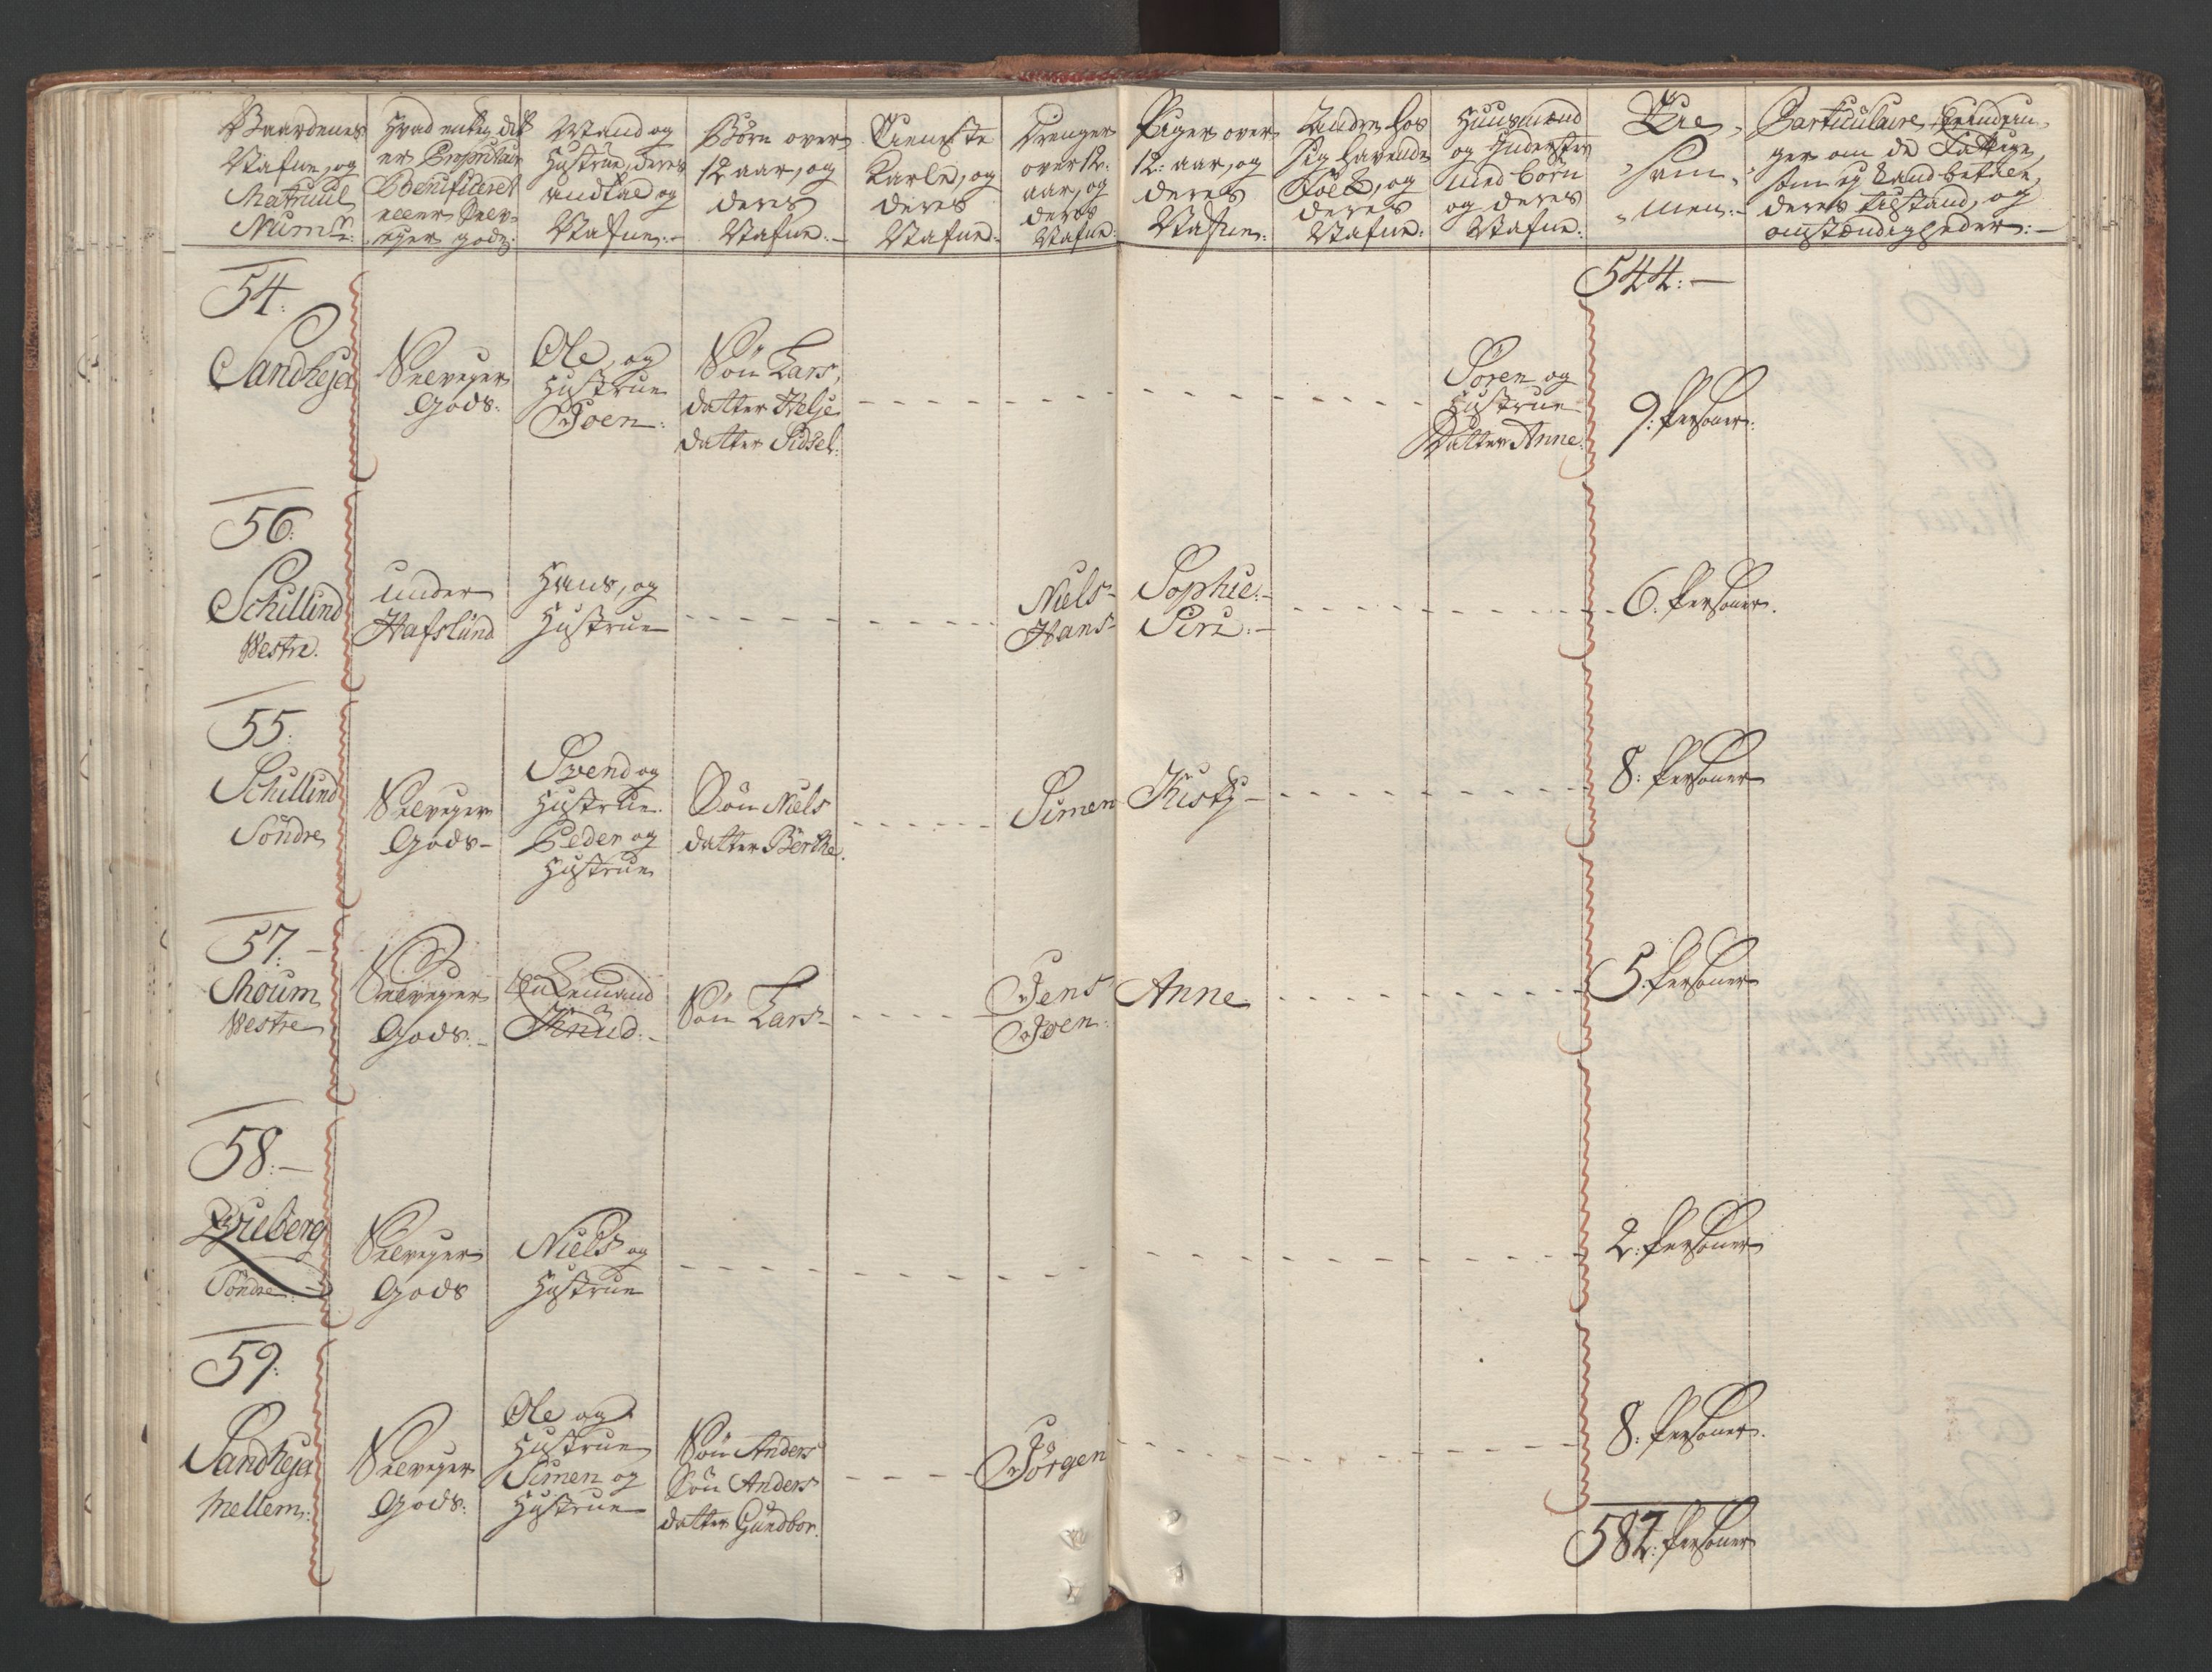 Gaardenes
Nafne, og
Matricul
Numr:
Hvad enten det
er Proprietair
Benificeret
eller Selv-
eyer gods.
Mand og
Hustrue, deres
andtal og
Nafne.
Börn over
12 aar, og
deres
Nafne.
Tieneste
Karle, og
deres
Nafne.
Drenger
over 12:
aar, og
deres
Nafne.
Piger over
12: aar, og
deres
Nafne.
Andre hos
sig havende
Folk, og
deres
Nafne.
Huusmænd
og Inderster
med börn
og deres
Nafne.
sam-
men.
Particulaire
ger om de Fattige,
som ej kand betale,
deres tilstand, og
omstændigheder.
544.
54.
Sandheja
Selveyer
Gods.
Ole, og
Hustrue
Joen.
Sön Lars,
datter Helje
datter Sidsel.
Sören og
Hustrue
Datter Anne.
9. Personer.
56.
Schillind
Westre.
under
Hafslund
Hans, og
Hustrue
Niels
Hans
Sophie.
Siri.
6. Personer.
55.
Schillind
Söndre
Selveyer
Gods
Svend og
Hustrue.
Peder og
Hustrue
Sön Niels
datter Berthe.
Simen
Kisty
8. Personer
57.
Moum
Westre
Selveyer
Gods.
En Lemand
Knud.
Sön Lars
Jens
Joen.
Anne
5. Personer
58.
Söndre
Selveyer
Gods
Niels og
Hustrue
2. Personer
59.
Sandheja
Mellem.
Selveyer
Gods.
Ole og
Hustrue
Simen og
Hustrue
Sön Anders
Sön Anders
datter Gundbor.
Jörgen
8. Personer.
582. Personer